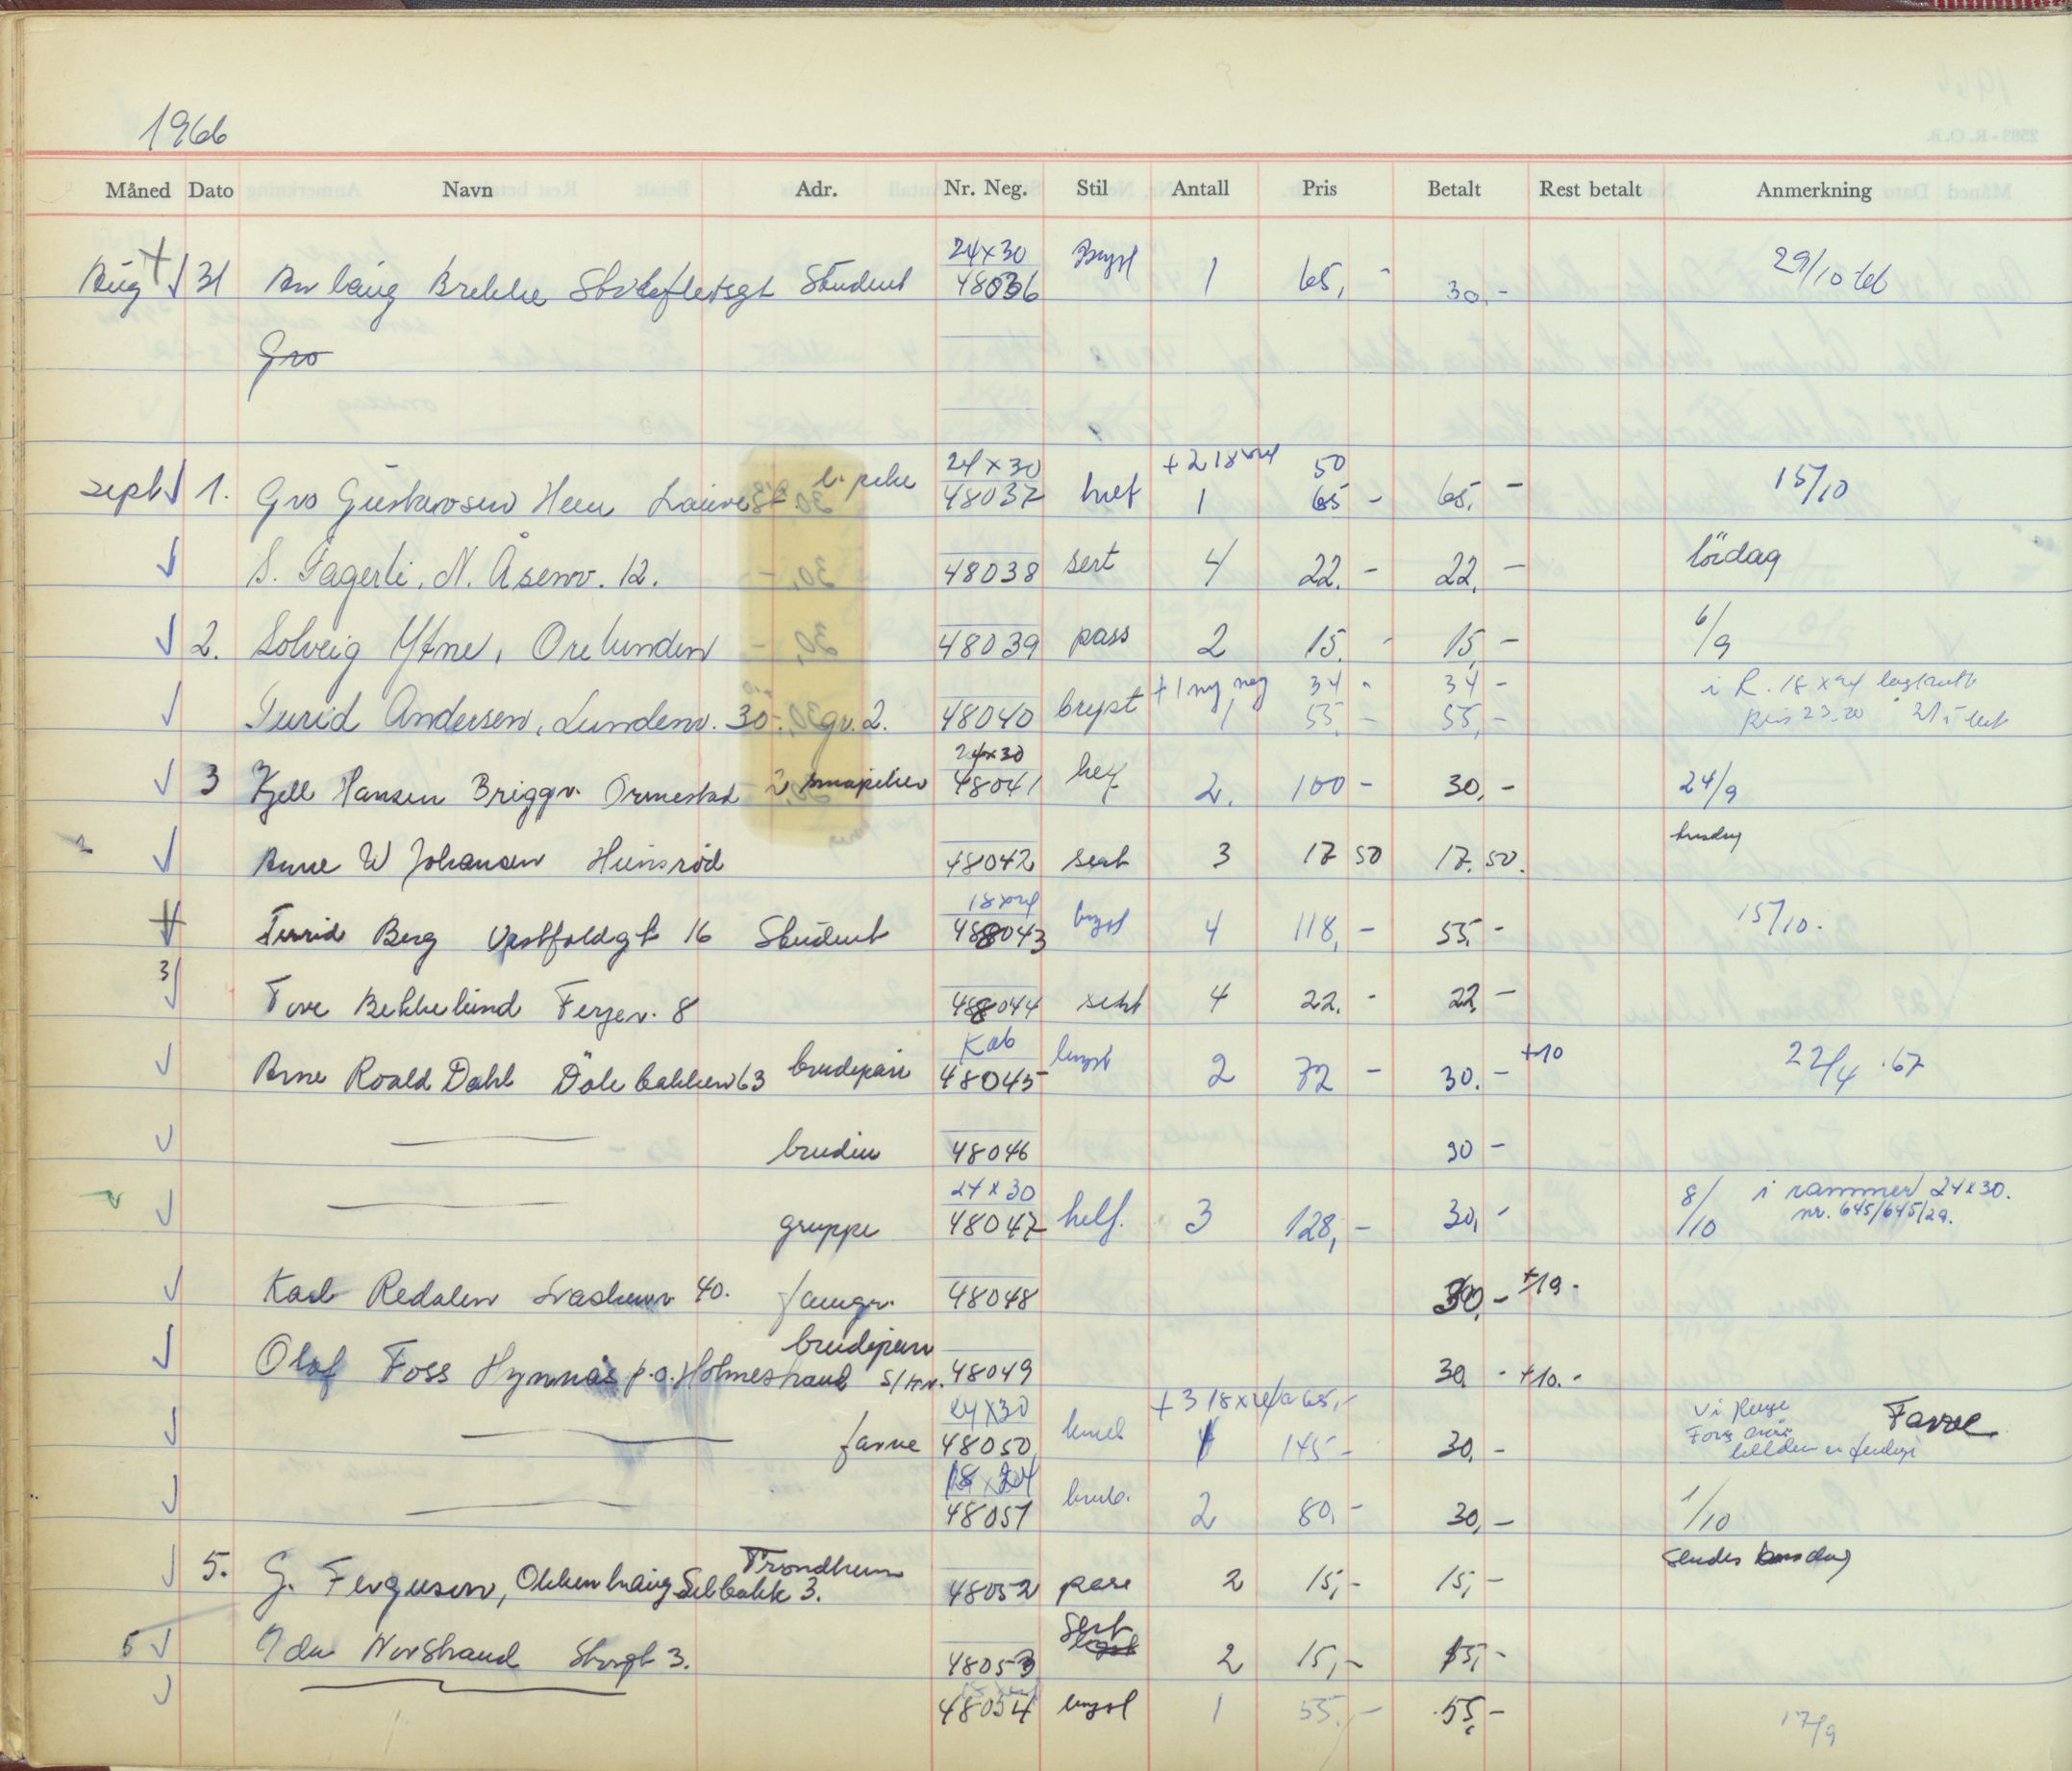 1966
Måned Dato Navn Adr. Nr. Neg. Stil Antall Pris Betalt Rest betalt Anmerkning
24x30
Aug 31 Brekke Student 48036 Bryst 1 65,- 30,- 29/10
Gro
24x30 + 2 18x24 50
sept 1. Gro Gustavsen Hem 48037 helf 1 65 - 65,- 15/10
S. Fagerli, N. Åsenv. 12. 48038 sert 4 22.- 22.- lördag
2. Solveig Ytne, Orelunden 48039 pass 2 15.- 15.- 6/9
+ 1 ny neg 34 - 34 - i R. 18x24
Turid Andersen, Lundenv. 30 - gr. 2. 48040 bryst 1 55,- 55,- 23.20
24x30
3 Kjell Hansen Briggv. Ormestad 2 småpiker 48041 helf 2. 100 - 30,- 24/9
Anne W Johansen Hunsrød 48042 sert 3 17 50 17.50.
18x24
Turid Berg Vestfoldgt 16 Student 48043 bryst 4 118,- 55,- 15/10.
Tove Bekkelund Fergev. 8 48044 sert 4 22.- 22,-
Kab +10
Arne Roald Dahl Dölebakken 63 brudepar 48045 bryst 2 72 - 30.- 22/4 .67
brudin 48046 30 -
24x30 i rammer 24x30.
gruppe 48047 helf. 3 128,- 30,- 8/10 nr. 645/645/29.
Karl Redalen 40. famgr. 48048 30,- +19.-
brudepar
Olaf Foss Hynnås p.a. Holmestrand 48049 30.- +10.-
24x30 + 3 18x24 a 65,- Vi Ringe
farve 48050 145 - 30,- Foss billden er ferdige Farve
18x24
48051 2 80,- 30,- 1/10
Trondheim
5. G. Ferguson, 3. 48052 pass 2 15,- 15,- sendes
Sert
5 Ida Norstrand Storgt 3. 48053 2 15,- 15,-
48054 bryst 1 55,- 55,- 17/9